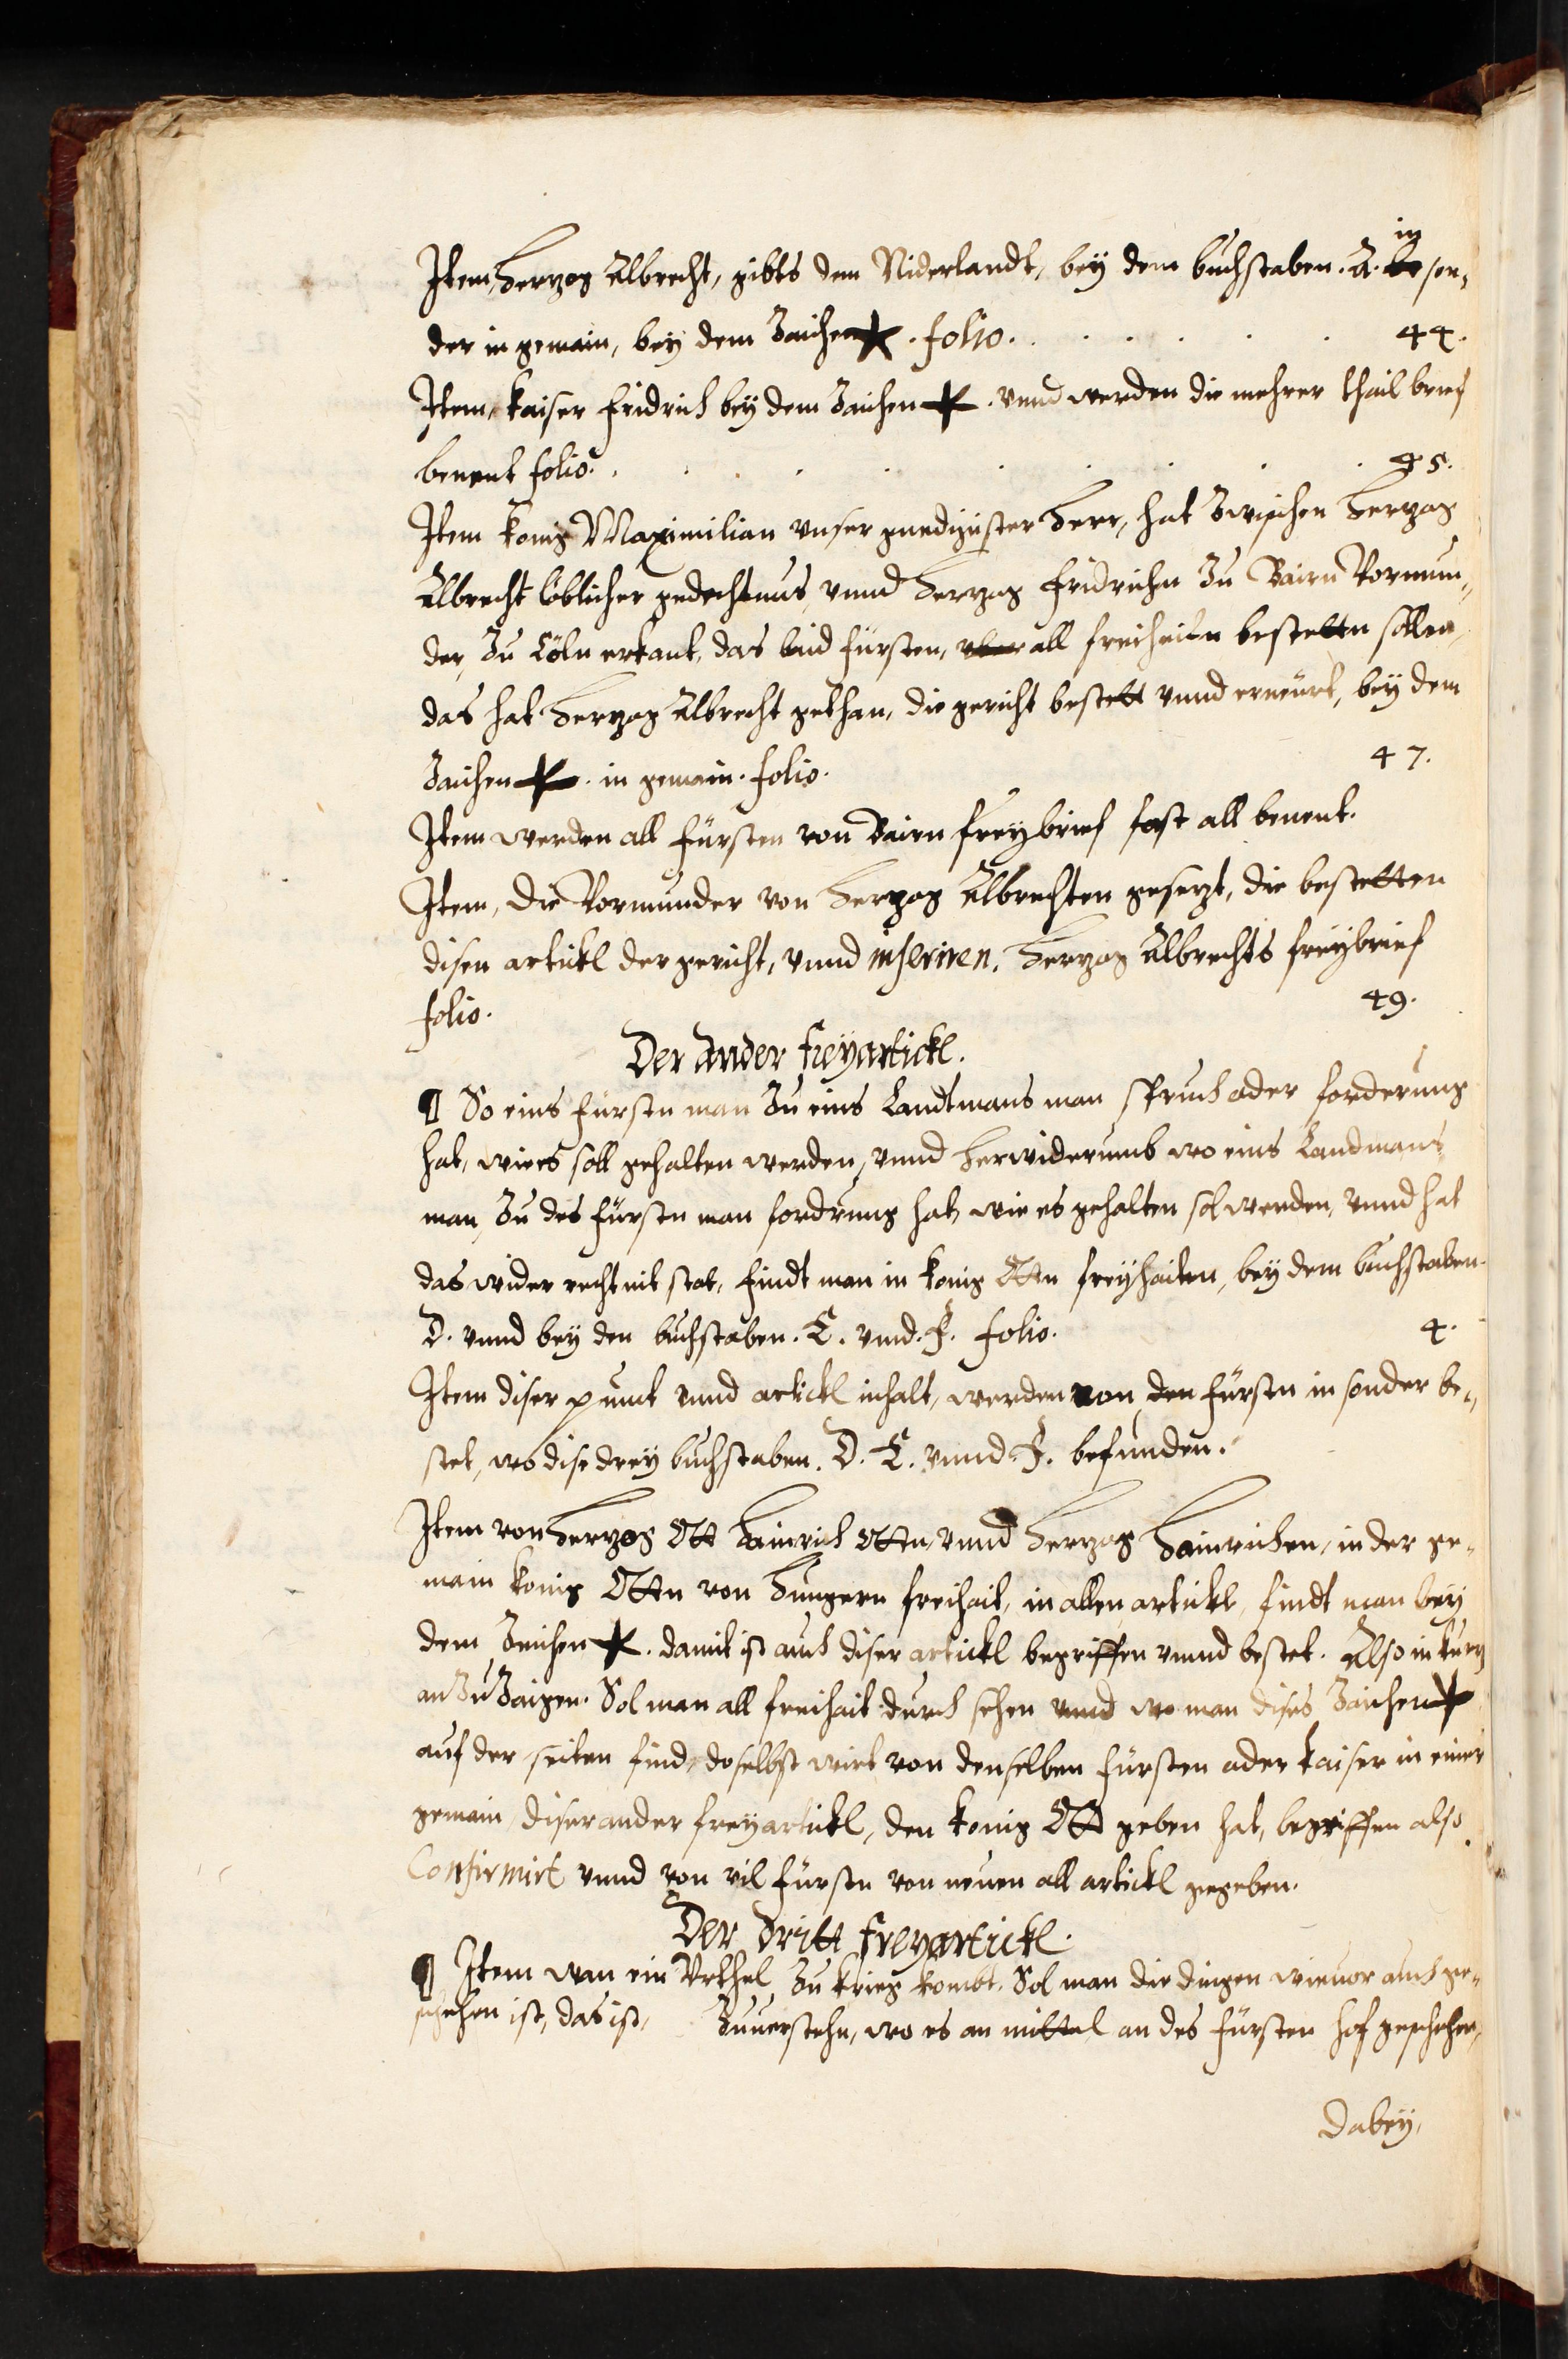 Item, Herzog Albrecht, gibts dem Niderlandt, bey dem buchstaben. A. in be son-
der in gemain, bey dem Zaichen * . folio. 44.
Item, kaiser Fridrich bey dem Zaichen * . vnnd werden die mehrer thail brief
benent folio. 45.
Item konig Maximilian vnser gnedigister Herr, hat Zwischen Herzog
Albrecht löblicher gedechtnus, vnnd Herzog Fridrichn Zu Bairn Vormun-
der, Zu Cöln erkant, das baid Fürsten, vber all freiheiten bestetten sollen,
das hat Herzog Albrecht gethan, die gericht bestett vnnd erneürt, bey dem
Zaichen * . in gemain. folio. 47.
Item werden all Fürsten von Bairn freybrief fast all benent.
Item, die Vormunder von Herzog Albrechten gesezt, die bestetten
disen artickl der gericht, vnnd inseriren. Herzog Albrechts freybrief
folio. 49.
Der ander freyartickl.
¶ So eins Fürsten man Zu eins Landtmans man spruch oder forderung
hat, wie es soll gehalten werden, vnnd herwiderumb wo eins Landmans
man, Zu des Fürsten man fordrung hat, wie es gehalten sol werden, vnnd hat
das wider recht nit stat, findt man in konig Otten freyhaiten, bey dem buchstaben.
D. vnnd bey den buchstaben. E. vnnd. F. folio. 4.
Item diser punct vnnd artickl inhalt, werden von den Fürsten in sonder be-
stet, wo dise drey buchstaben. D. E. vnnd F. befunden.
Item von Herzog Ott Hainrich Otten, vnnd Herzog Hainrichen, in der ge-
main konig Otten von Hungern freihait, in allen artickl, findt man bey
dem Zaichen * . damit ist auch diser artickl begriffen vnnd bestet. Also in kurz
an Zu Zaigen. Sol man all freihait durch sehen vnnd wo man dises Zaichen *
auf der seiten find, doselbst wirt von denselben Fürsten oder kaiser in einer
gemain, diser ander freyartickl, den konig Ott geben hat, begriffen also
Confirmirt vnnd von vil Fürsten von neuen all artickl gegeben.
Der dritt freyartickl.
¶ Item wan ein Vrthel Zu krieg kombt. Sol man die dingen wieuor auch ge-
schehen ist, das ist, Zuuerstehn, wo es an mittel an des Fürsten hof geschehen,
dabey,